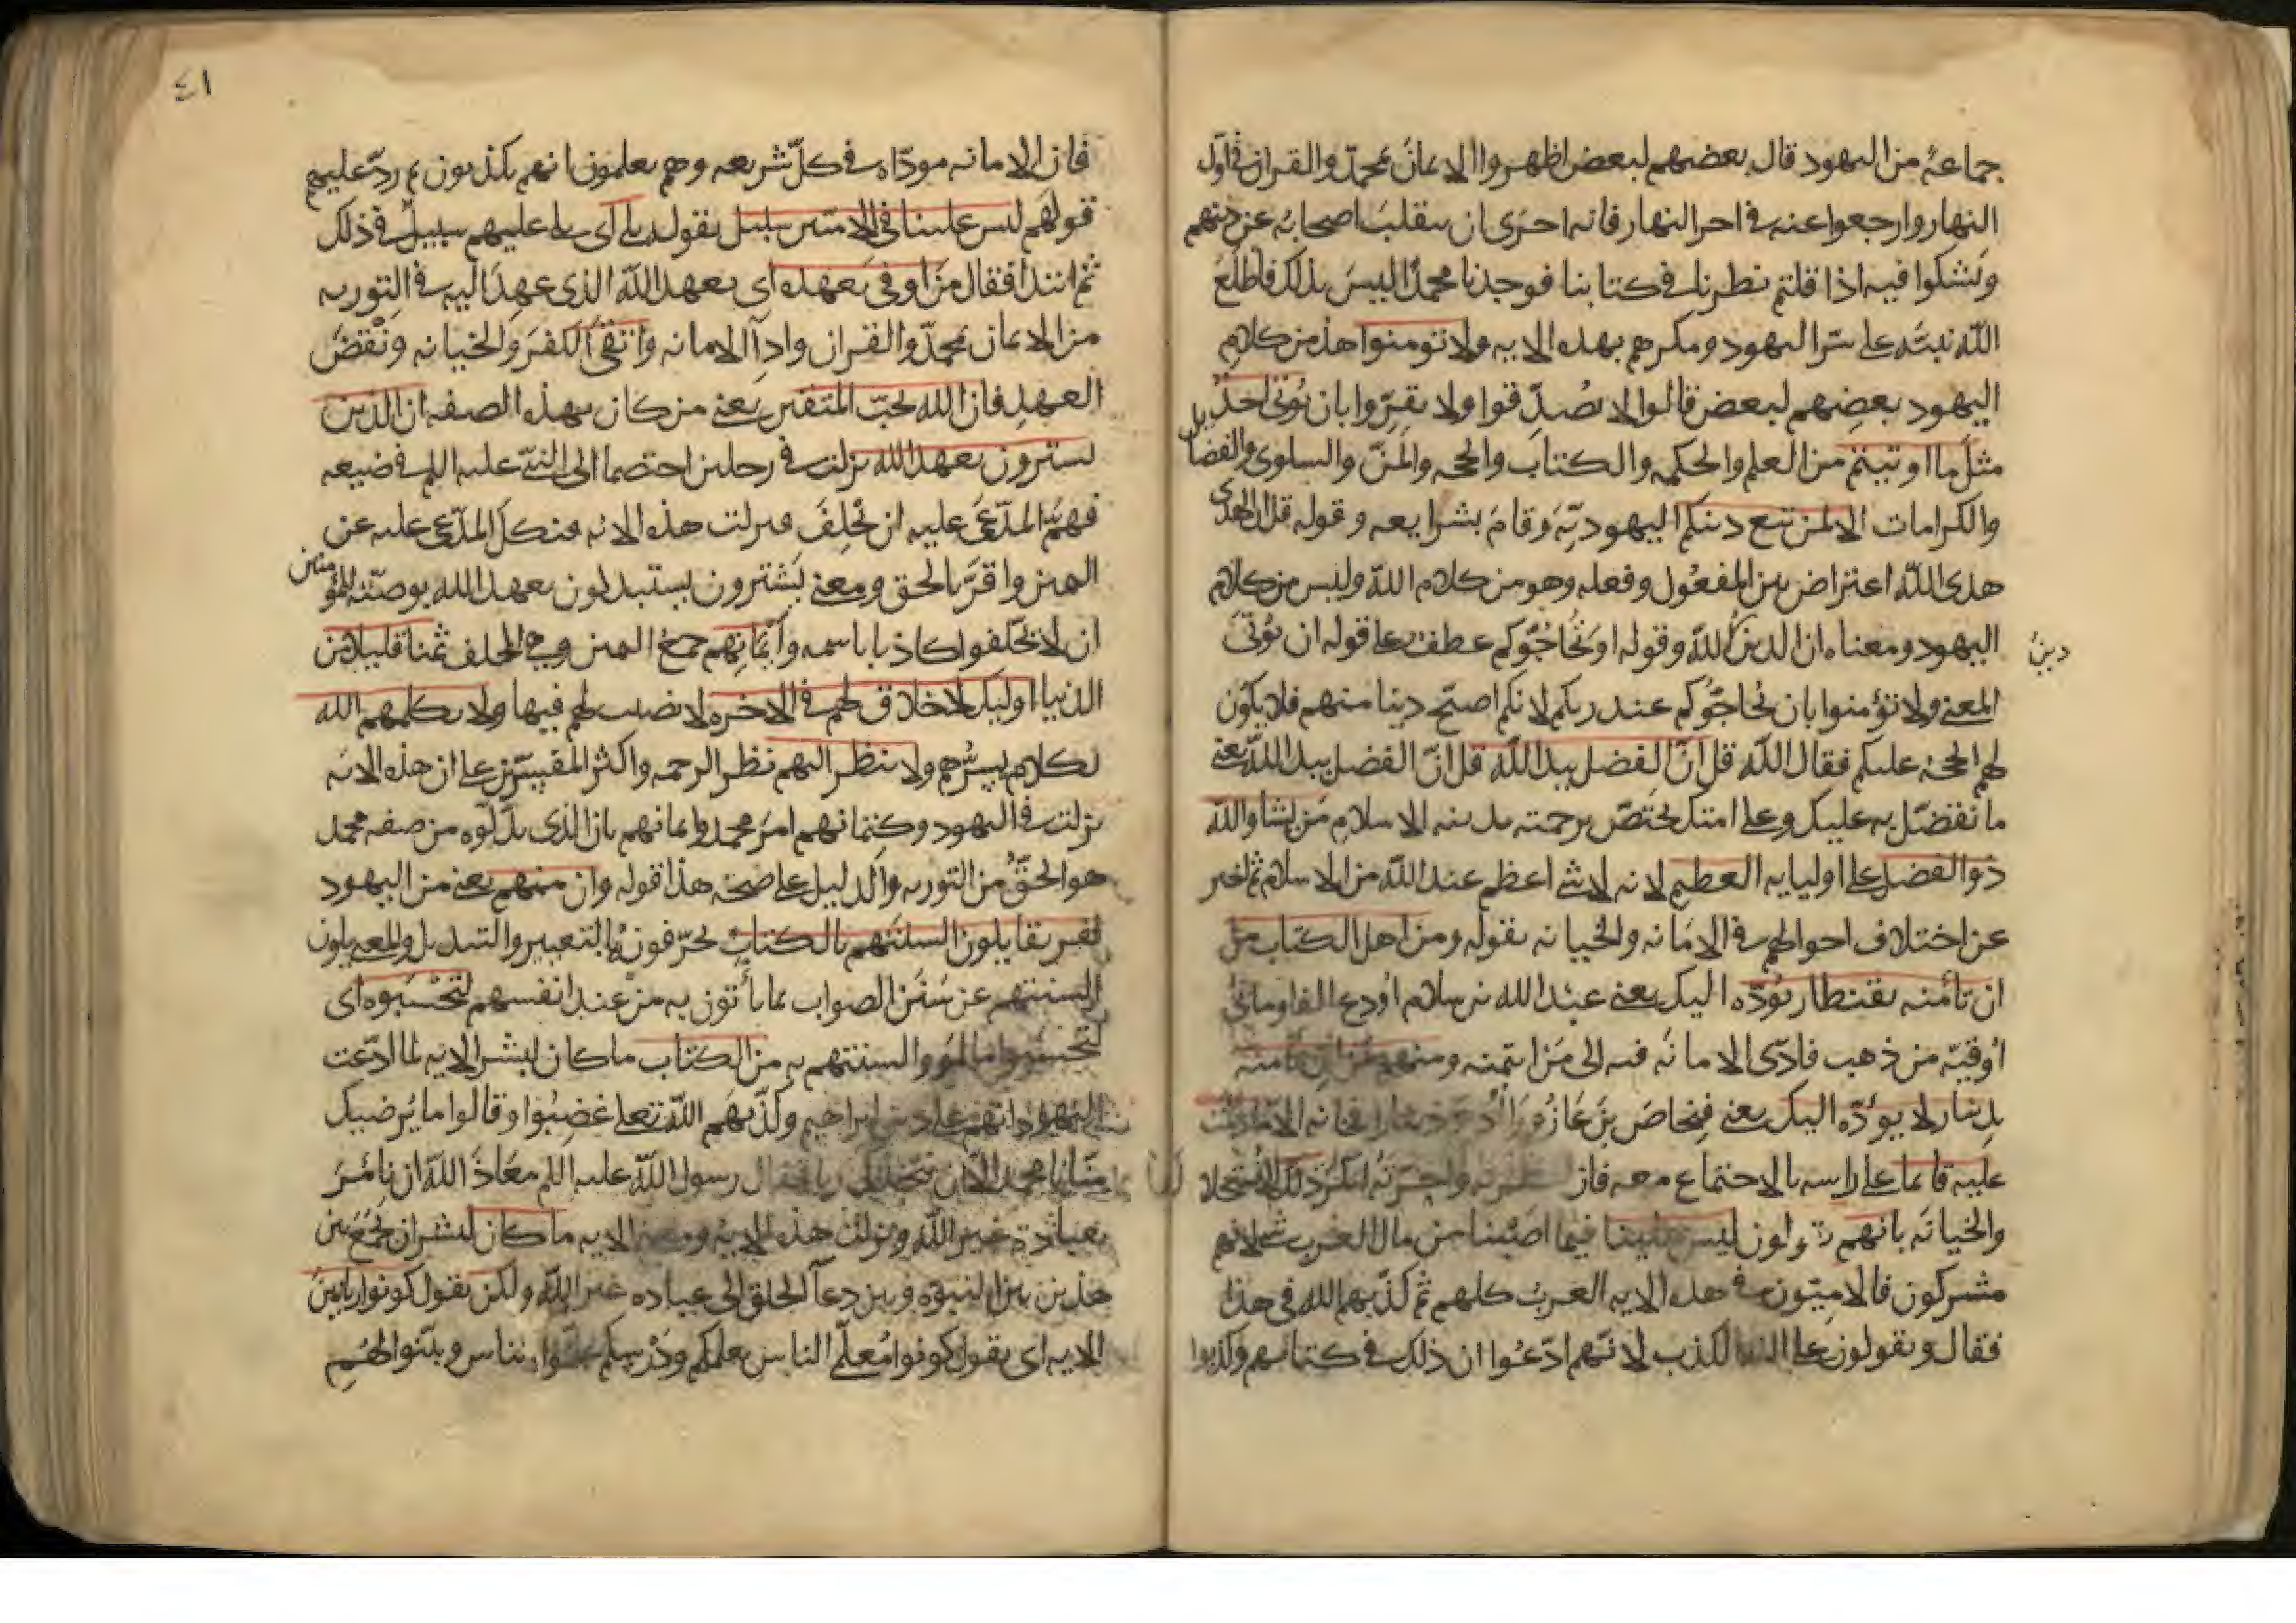 جماعة من اليهود قال بعضهم لبعض اظهروا الايمان بمحمد والقران في اول
النهار وارجعوا عنه في اخر النهار فانه احرى ان ينقلب اصحابه عن دينهم
ويشكوا فيه اذا قلتم نظرنا في كتابنا فوجدنا محمدا ليس بذلك فاطلع
الله نبيه على سر اليهود ومكرهم بهذه الايه ولا تومنوا هذا من كلام
اليهود بعضهم لبعض قالوا لا تصدقوا ولا تقروا بان يوتى احد
مثل ما اوتيتم من العلم والحكمه والكتاب والحجه والمن والسلوى والفضايل
والكرامات الا لمن تبع دينكم اليهودية وقام بشرايعه وقوله قل ان الهدى
هدى الله اعتراض بين المفعول وفعله وهو من كلام الله وليس من كلام
اليهود ومعناه ان الدين لله وقوله او يحاجوكم عطف على قوله ان يوتى
دين
المعنى ولا تؤمنوا بان يحاجوكم عند ربكم لانكم اصح دينا منهم فلا يكون
لهم الحجة عليكم فقال الله قل ان الفضل بيد الله قل ان الفضل بيد الله يعني
ما تفضل به عليك وعلى امتك يختص برحمته بدينه الاسلام من يشا والله
ذو الفضل على اوليايه العظيم لانه لا شي اعظم عند الله من الاسلام ثم اخبر
عن اختلاف احوالهم في الامانه والخيانه بقوله ومن اهل الكتاب من
ان تأمنه بقنطار يؤده اليك يعني عبد الله بن سلام اودع الفا ومائتي
اوقية من ذهب فادى الامانه فيه الى من ايتمنه ومنهم من ان تأمنه
بدينار لا يؤده اليك يعني فنحاص بن عازورا اودع دينارا فخانه الا ما دمت
عليه قايما على راسه بالاجتماع معه فان واخرته انكر ذلك الاستحلال
والخيانه بانهم يقولون ليس علينا فيما اصبنا من مال العرب شي لانهم
مشركون فالاميون في هذه الايه العرب كلهم ثم كذبهم الله في هذا
فقال ويقولون على الله الكذب لانهم ادعوا ان ذلك في كتابهم وكذبوا
٤١
فان الامانه موداه في كل شريعه وهم يعلمون انهم يكذبون ثم رد عليهم
قولهم ليس علينا في الاميين سبيل بقوله بلى اي بلى عليهم سبيل في ذلك
ثم ابتدا فقال من اوفى بعهده اي بعهد الله الذي عهد اليه في التوريه
من الايمان بمحمد والقران وادآ الامانه واتقى الكفر والخيانه ونقض
العهد فان الله يحب المتقين يعني من كان بهذه الصفه ان الذين
يشترون بعهد الله نزلت في رجلين اختصما الى النبي عليه السلم في ضيعه
فهم المدعى عليه ان يحلف فنزلت هذه الايه فنكل المدعى عليه عن
اليمين واقر بالحق ومعنى يشترون يستبدلون بعهد الله بوصيته للمؤمنين
ان لا يحلفوا كاذبا باسمه وأيمانهم جمع اليمين وهي الحلف ثمنا قليلا من
الدنيا اوليك لا خلاق لهم في الاخره لا نصيب لهم فيها ولا يكلمهم الله
بكلام يسرهم ولا ينظر اليهم نظر الرحمه واكثر المفسرين على ان هذه الايه
نزلت في اليهود وكتمانهم امر محمد وايمانهم بان الذي بدلوه من صفه محمد
هو الحق من التوريه والدليل على صحة هذا قوله وان منهم يعني من اليهود
لفريقا يلون السنتهم بالكتاب يحرفونه بالتغيير والتبديل والمعنى يلون
السنتهم عن سنن الصواب بما يأتون به من عند انفسهم لتحسبوه اي
لتحسبوا ما لووا السنتهم به من الكتاب ما كان لبشر الايه لما ادعت
اليهود انهم على دين ابراهيم وكذبهم الله تعلى غضبوا وقالوا ما يرضيك
منا يا محمد الا ان نتخذك ربا فقال رسول الله عليه السلم معاذ الله ان نامر
بعبادة غير الله ونزلت هذه الايه ومعنى الايه ما كان لبشر ان يجمع بين
هذين بين النبوه وبين دعآ الخلق الى عباده غير الله ولكن يقول كونوا ربانيين
الايه اي يقول كونوا معلمي الناس بعلمكم ودرسكم علموا الناس وبينوا لهم